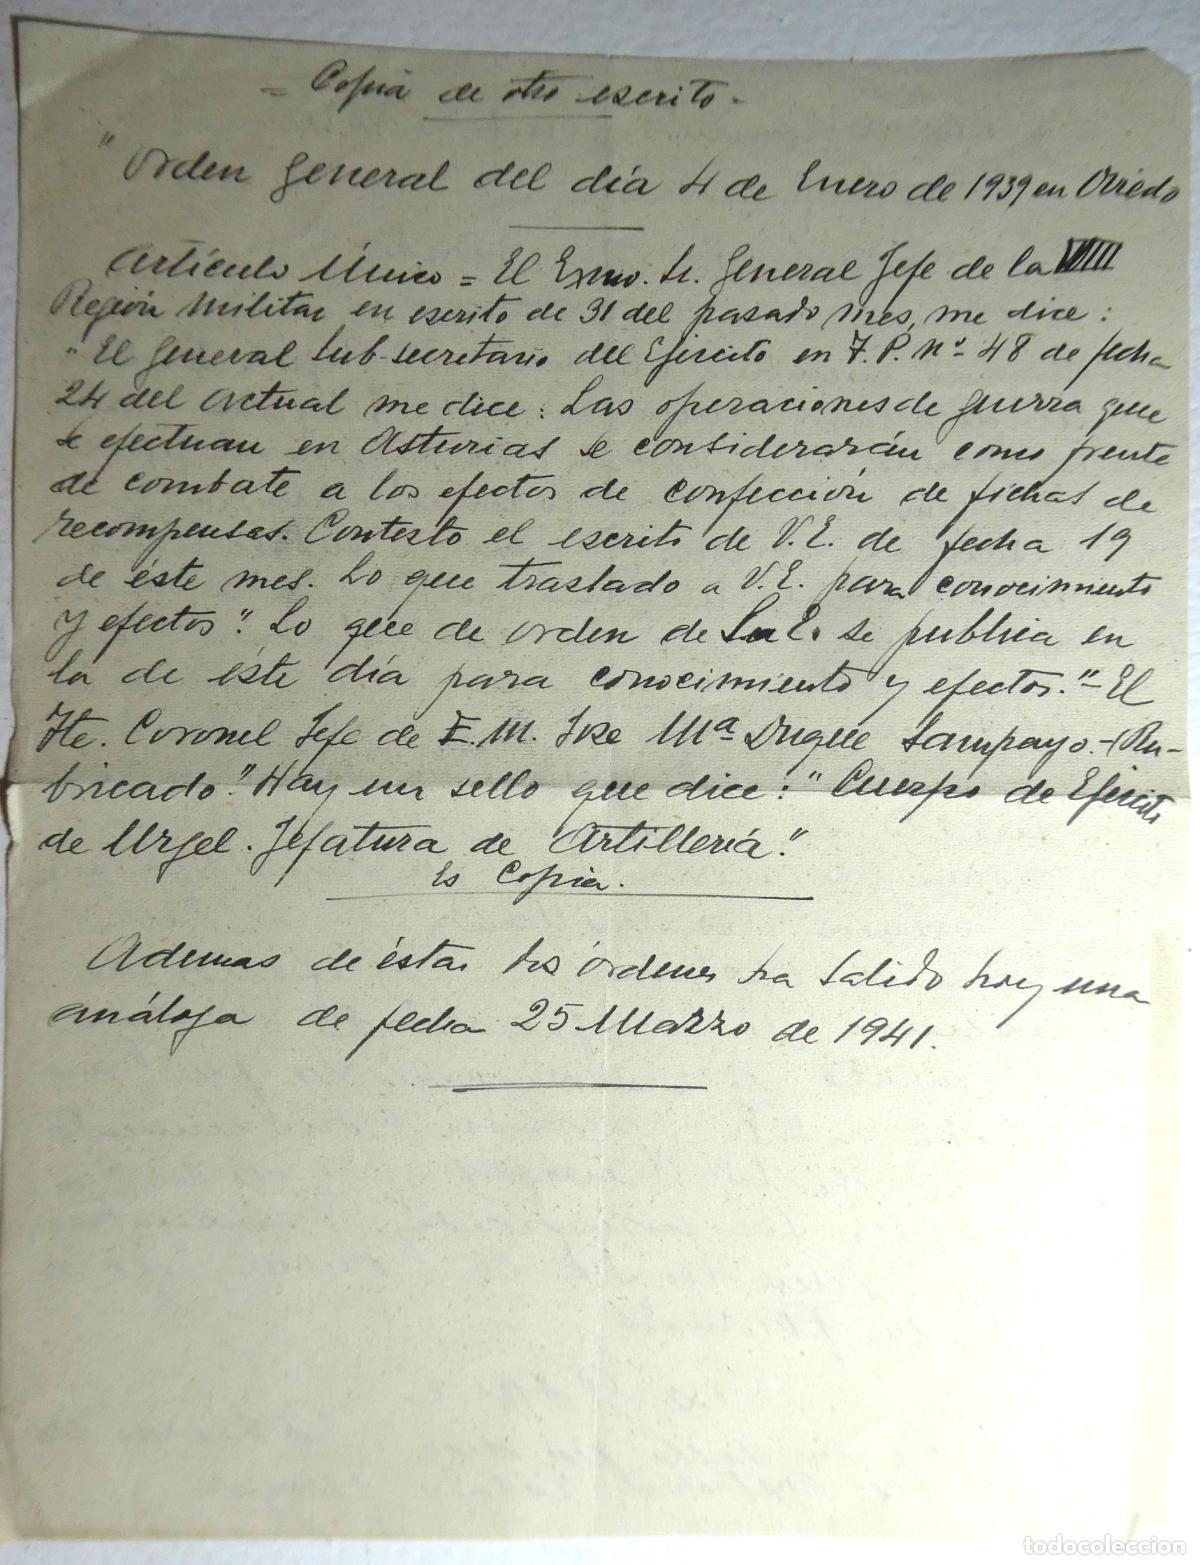 = Copia de otro escrito -
"Orden General del día 4 de Enero de 1939 en Oviedo
Artículo Único = El Exmo. Sr. General Jefe de la VIII
Región Militar en escrito de 31 del pasado mes, me dice:
"El General Sub-secretario del Ejército en F.P. nº 48 de fecha
24 del actual me dice: Las operaciones de guerra que
se efectuan en Asturias se considerarán como frente
de combate a los efectos de confección de fichas de
recompensas. Contesto el escrito de V.E. de fecha 19
de éste mes. Lo que traslado a V.E. para conocimiento
y efectos". Lo que de orden de S.E. se publica en
la de éste día para conocimiento y efectos."- El
Tte. Coronel Jefe de E.M. Jose Mª Duque Sampayo.-(Ru-
bricado". Hay un sello que dice: "Cuerpo de Ejército
de Urgel. Jefatura de Artillería."
Es Copia.
Ademas de éstas dos órdenes ha salido hoy una
análoga de fecha 25 Marzo de 1941.
todocoleccion